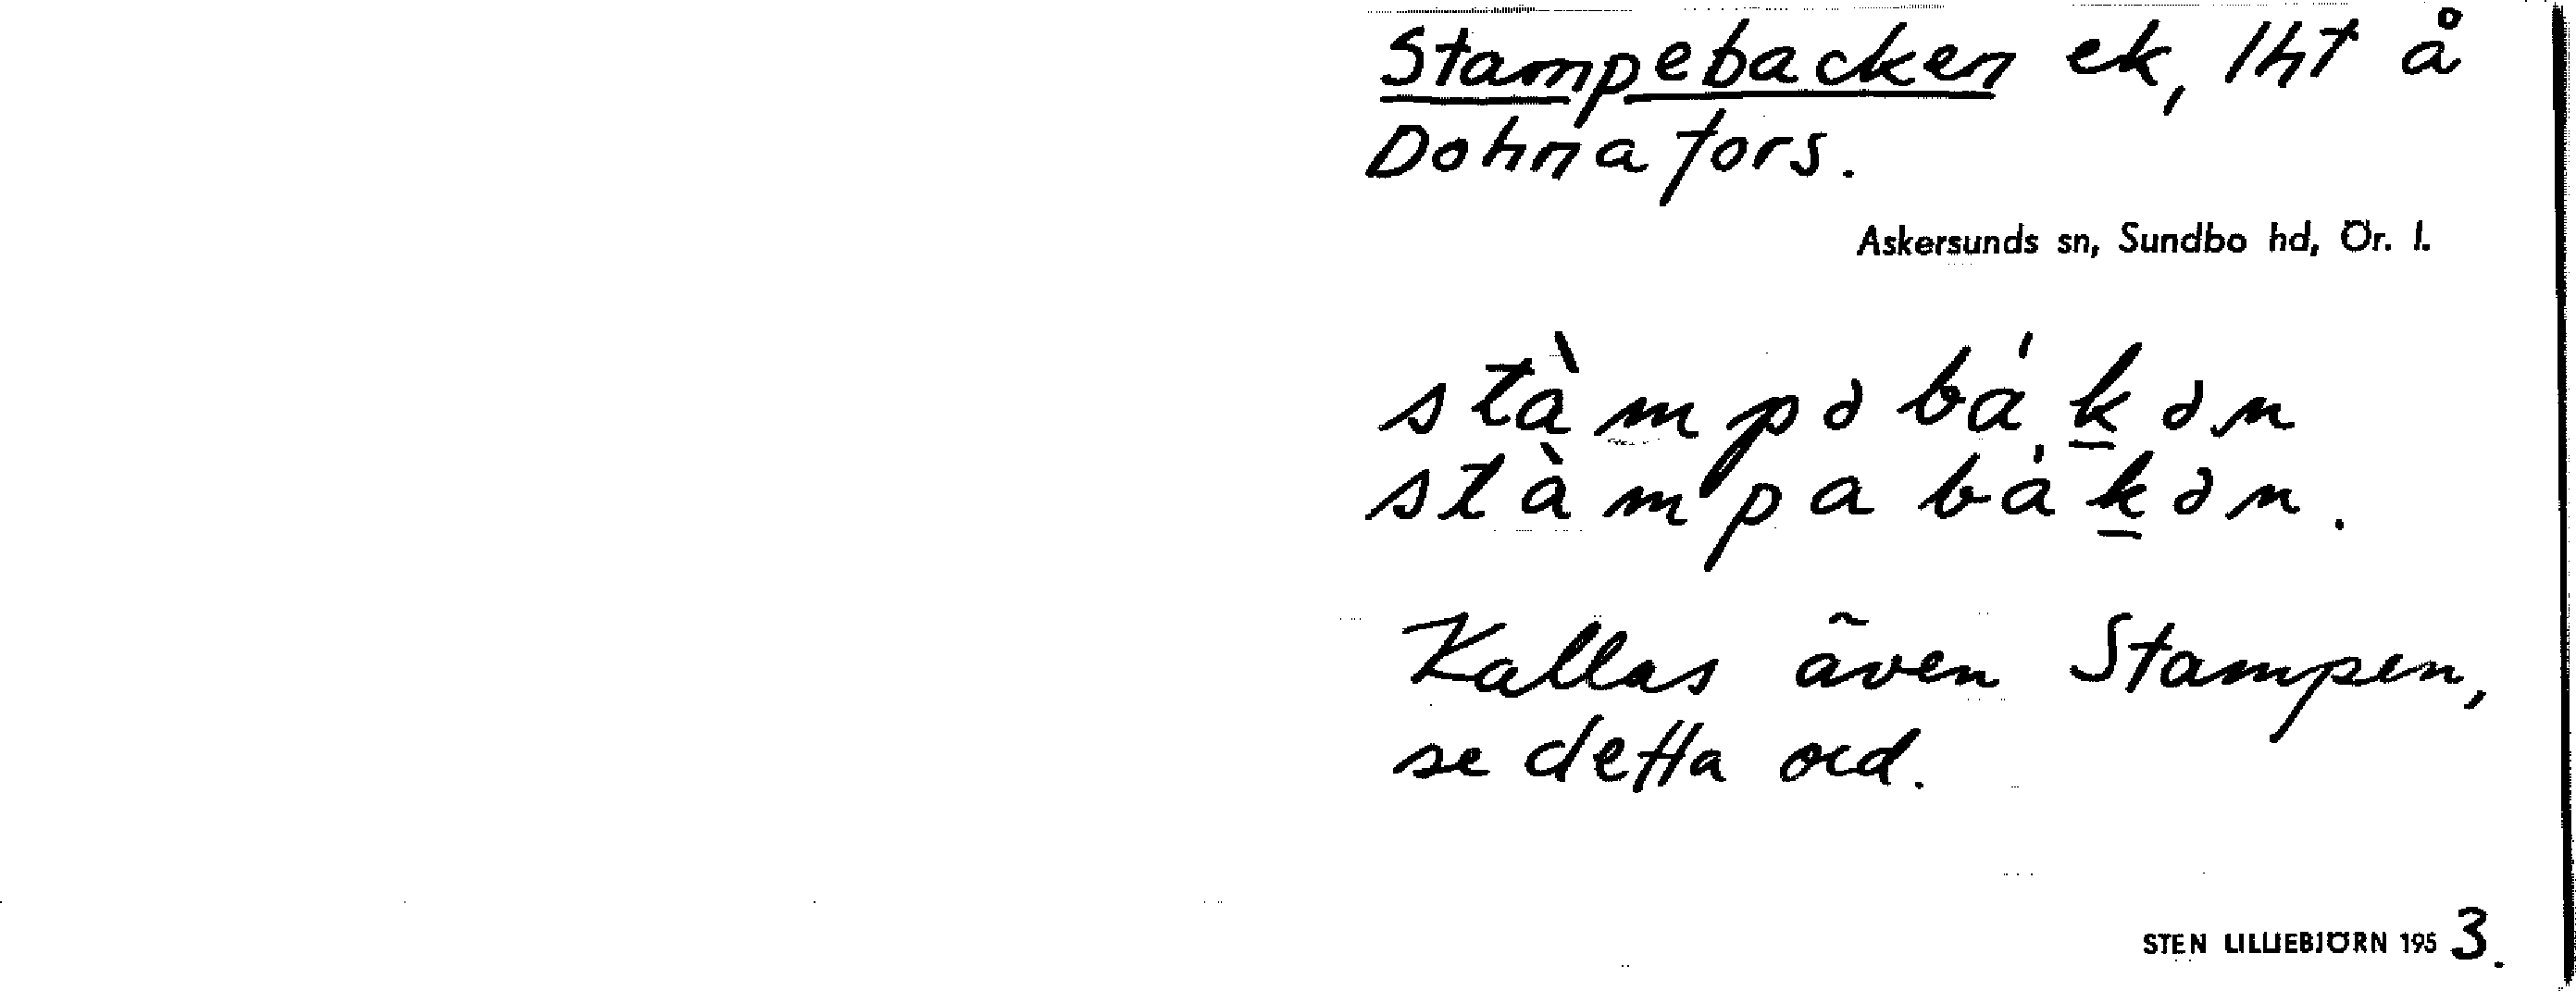 Stampebacken ek, lht å
Dohnafors.
Askersunds sn, Sundbo hd, Ör. l.
stàmpəbákən
stàmpabákən.
Kallas även Stampen,
se detta ord.
STEN LILLIEBJÖRN 1953.